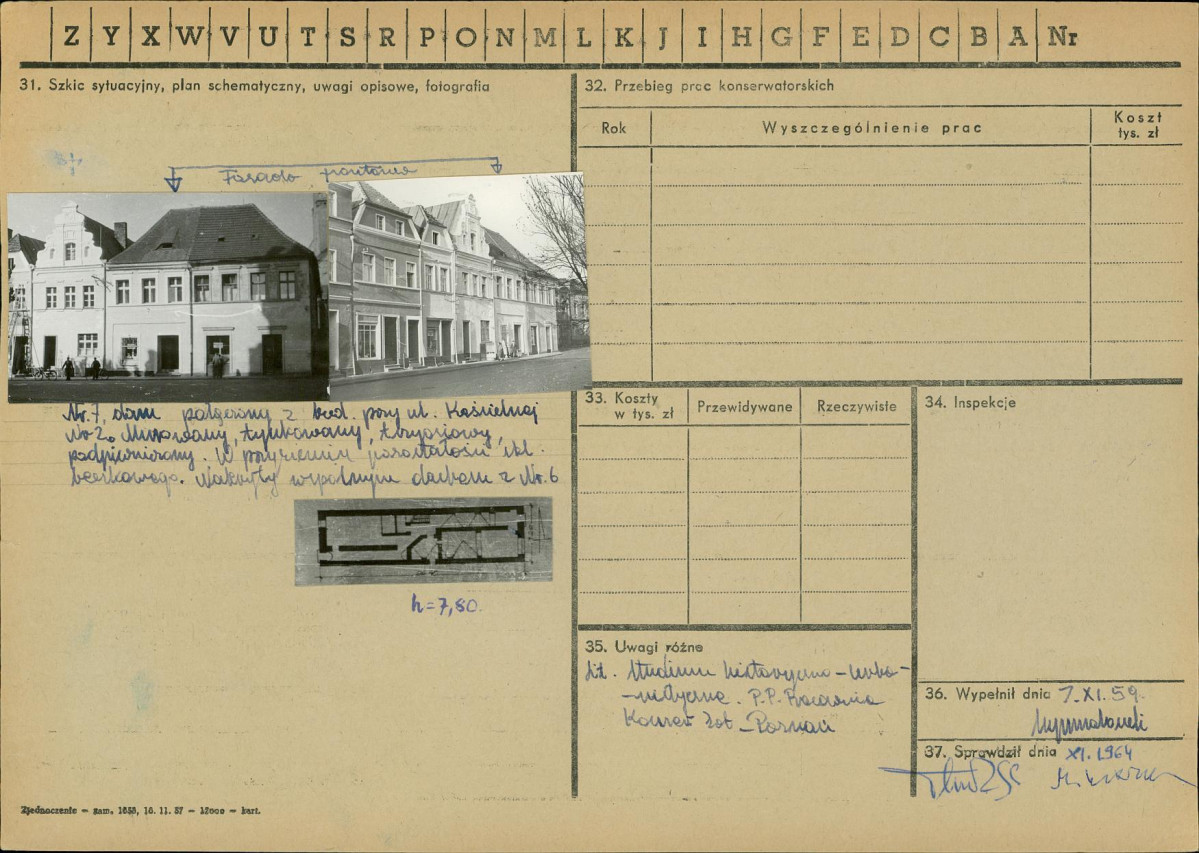 Z Y X W V U T S R P O N M L K J I H G F E D C B A Nr
31. Szkic sytuacyjny, plan schematyczny, uwagi opisowe, fotografia
Fasada frontowa
Nr. 7, dom połączony z bud. przy ul. Kościelnej
No 2. Murowany, tynkowany, trzyosiowy,
podpiwniczony. W przyziemiu pozostałości skl.
beczkowego. Nakryty wspólnym dachem z Nr. 6
h = 7,80.
Zjednoczenie — zam. 1658, 16. 11. 57 — 12000 — kart.
32. Przebieg prac konserwatorskich
Rok
Wyszczególnienie prac
Koszt
tys. zł
33. Koszty
w tys. zł
Przewidywane
Rzeczywiste
34. Inspekcje
35. Uwagi różne
Lit. Studium historyczno-urba-
-nistyczne. P.P. Pracownia
Konserw Zab. - Poznań
36. Wypełnił dnia 7. XI. 59.
37. Sprawdził dnia XI. 1964